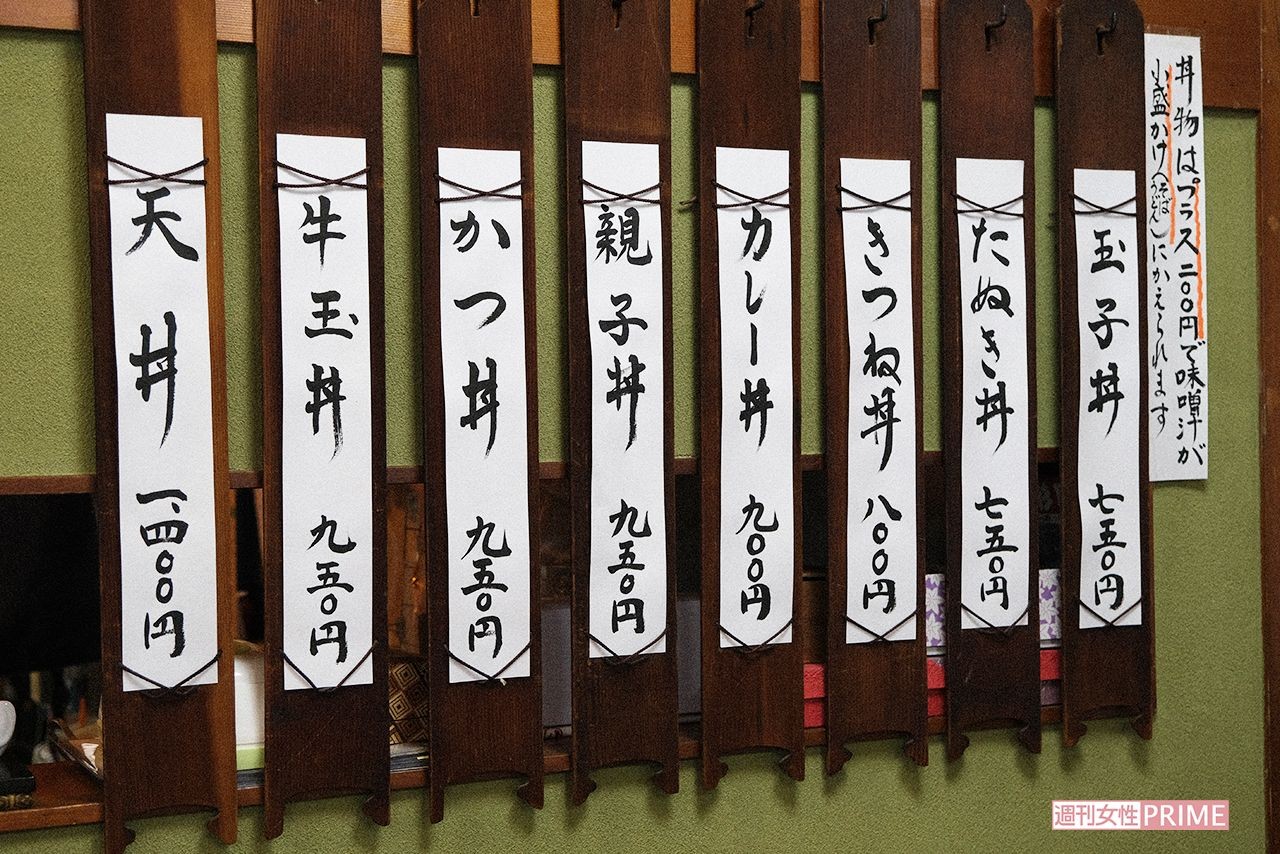 丼物はプラス二〇〇円で味噌汁が
小盛かけ(そばうどん)にかえられます
玉子丼 七五〇円
たぬき丼 七五〇円
きつね丼 八〇〇円
カレー丼 九〇〇円
親子丼 九五〇円
かつ丼 九五〇円
牛玉丼 九五〇円
天丼 一、四〇〇円
週刊女性PRIME